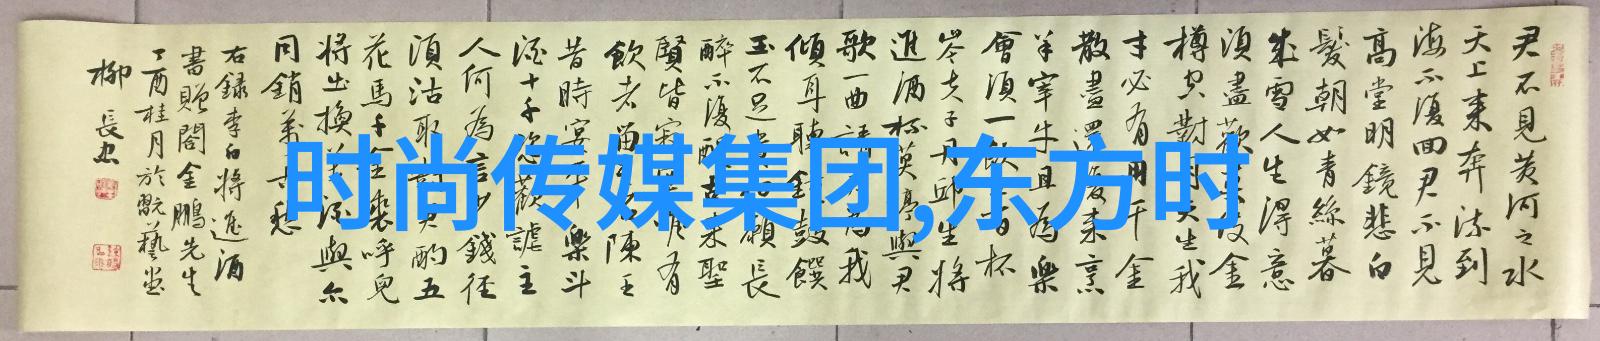 君不见黄河之水
天上来奔流到
海不復回君不見
高堂明鏡悲白
髮朝如青絲暮
成雪人生得意
須盡歡
樽空對月天生我
才必有用千金
散盡還復来烹
羊宰牛且為樂
會須一飲三百杯
岑夫子丹邱生將
進酒杯莫停與君
歌一曲請
傾耳聽鐘鼓饌
玉不足貴 願長
醉不復醒古来聖
賢皆寂 有
飲者留其名陳王
昔時宴平樂斗
酒十千恣歡謔主
人何為言少錢径
須沽取對君酌五
花馬千金裘呼兒
將出換美酒與尔
同銷萬古愁
右録李白將進酒
書贈閣金鵬先生
丁酉桂月於 藝堂
柳長忠
时尚传媒集团,东方时